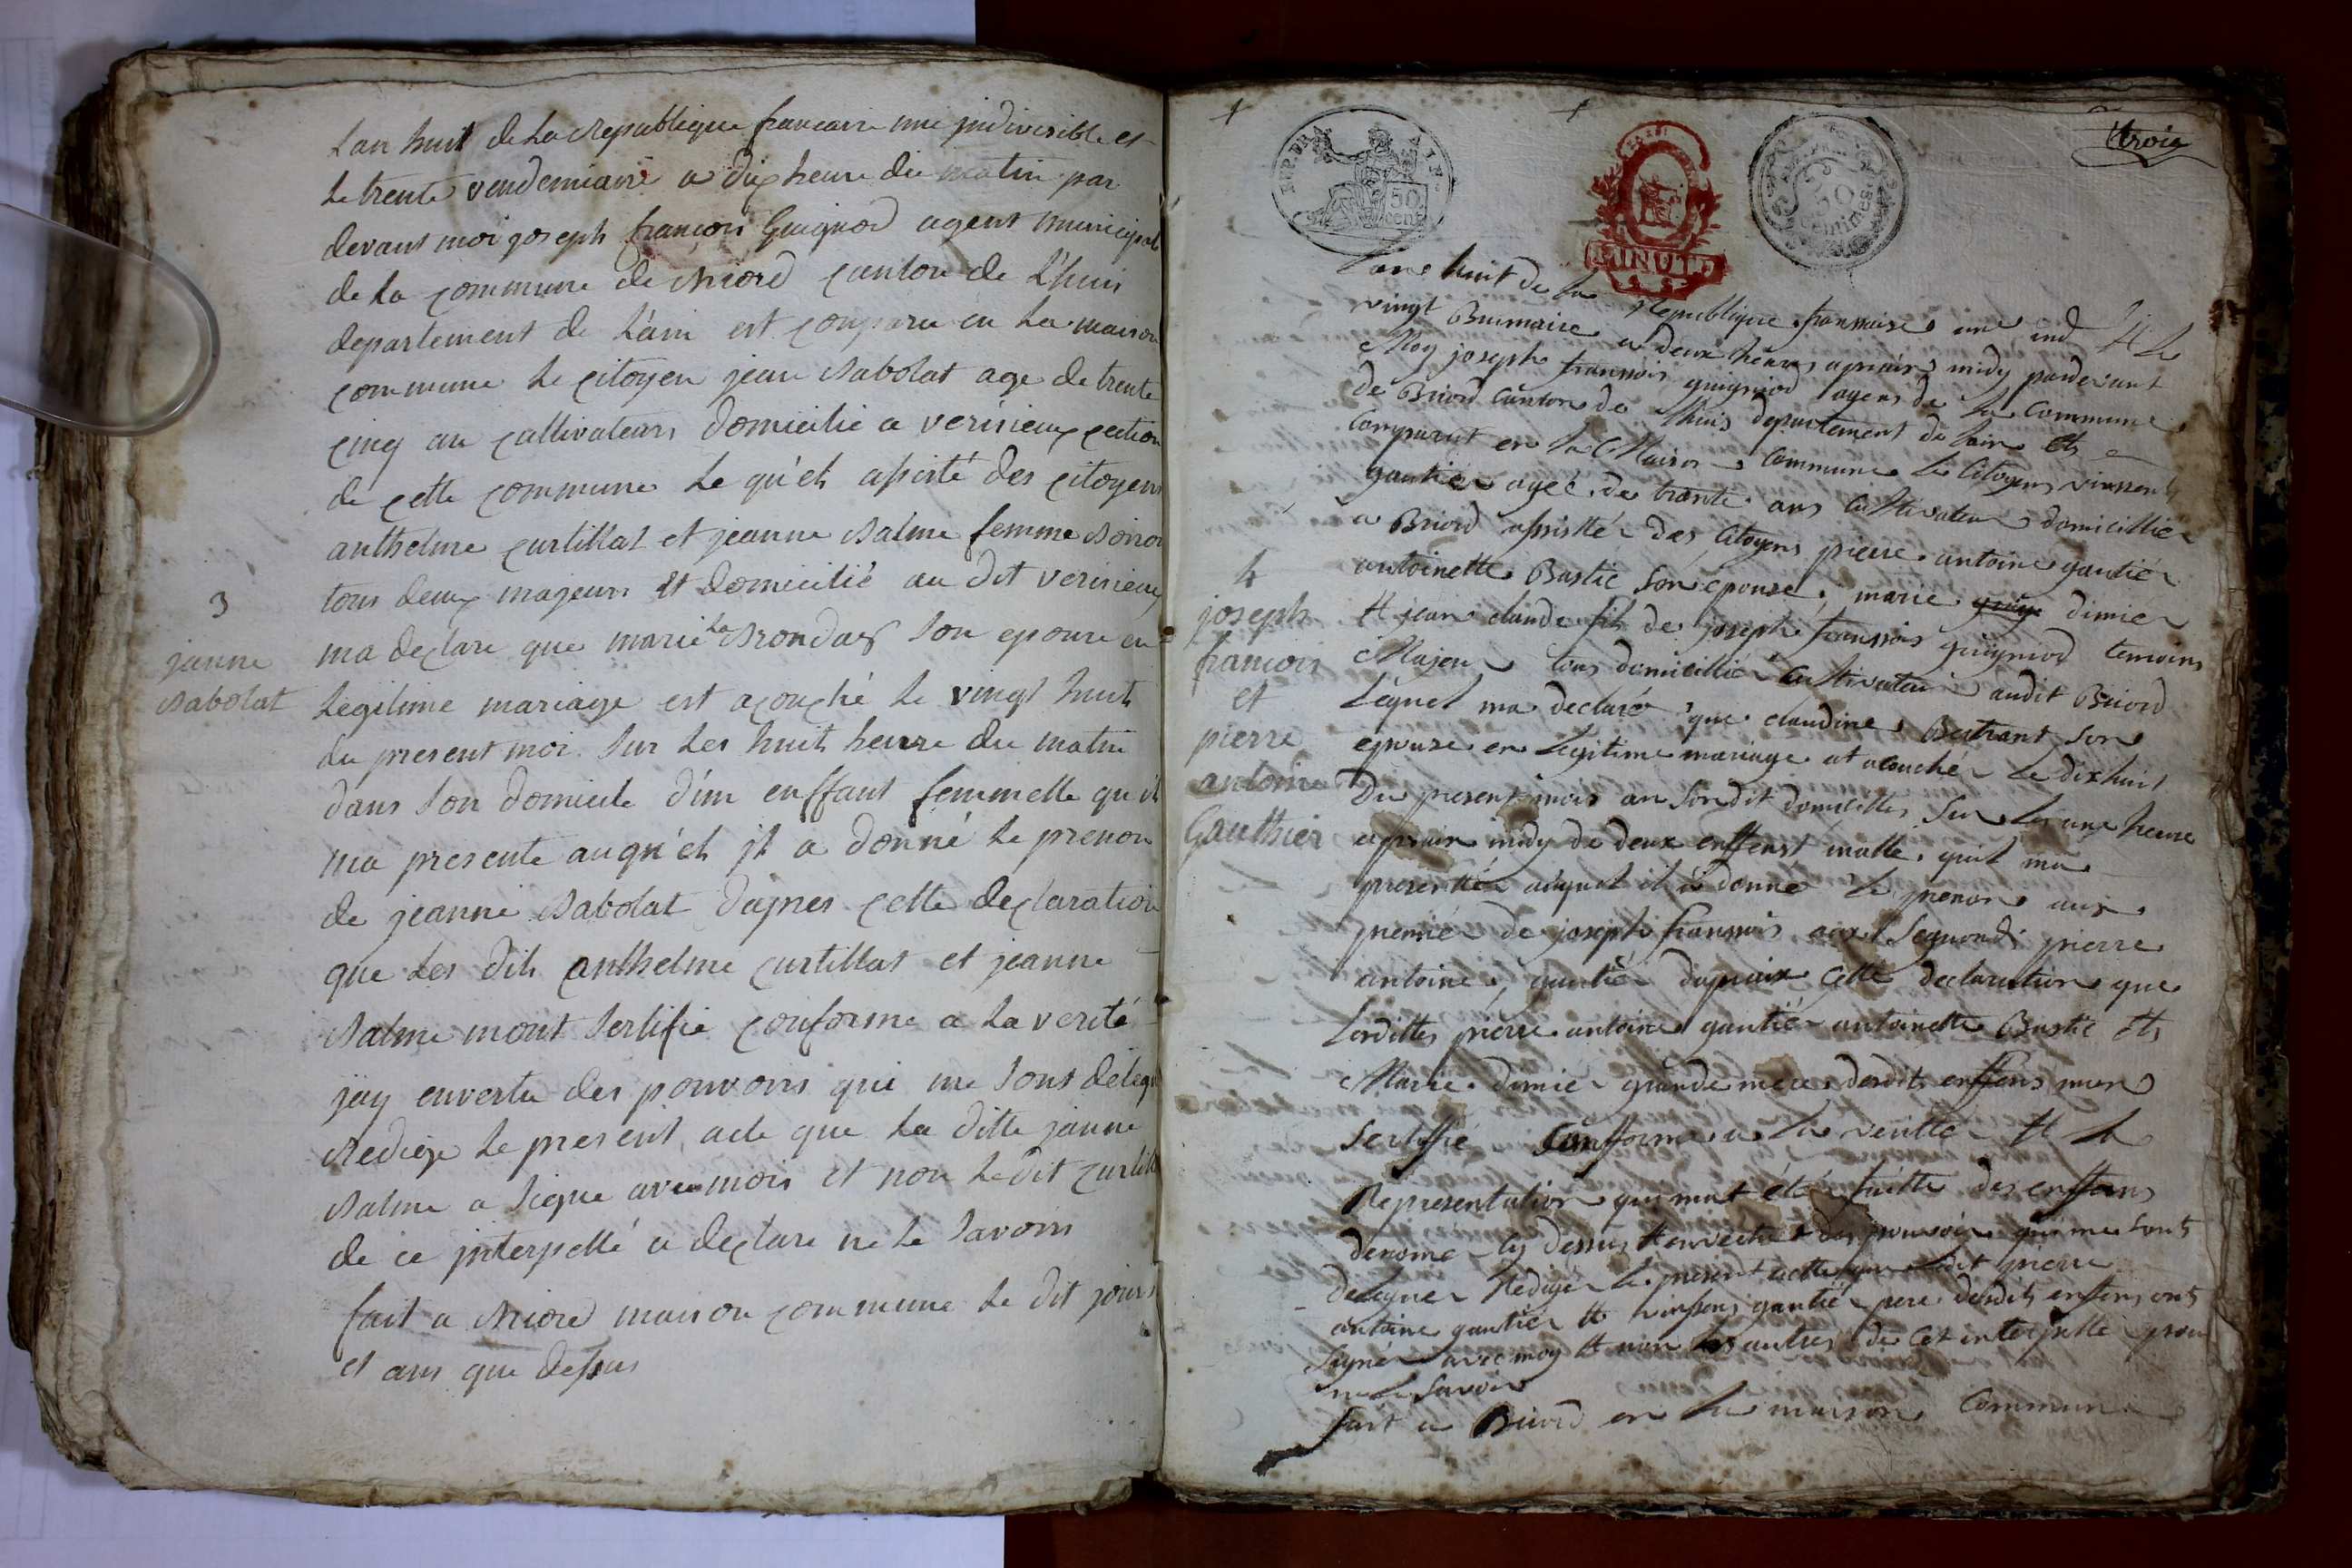 Lan huit de La Republique francaise une jndivisible et
Le trente vendemiaire a dix heure du matin par
devant moi joseph françois Guignod agent municipal
de La commune de Briord canton de L'huis
departement de L'ain est comparu en La maison
commune Le citoyen jean Rabolat age de trente
cinq an cultivateurs domicilié a verisieux section
de cette commune Le qu'el assisté des citoyens
anthelme curtillat et jeanne Balme femme
tous deux majeurs et domicilié au dit verisieux
3
janne
Rabolat
ma declare que marie La Bronda son epouse en
Legitime mariage est acouché Le vingt huit
du present moi sur Les huit heure du matin
dans son domicile d'un enffant femmelle qu'il
ma presente auqu'el jl a donné Le prenon
de jeanne Rabolat d'apres cette declaration
que Les dits anthelme curtillat et jeanne
Balme mont sertifié conforme a La verité
jay envertu des pouvoirs qui me sont delegu
Redige Le present acte que La ditte janne
Balme a signe avec mois et non Le dit curtill
de ce jnterpellé a declare ne Le savoirs
fait a Briord maison commune Le dit jours
et ans que dessus
troix
REP. FRA
50
cent.
MINUTE
50
centimes
Lans huit de La Republique franssaise une ind et Le
vingt Brumaire a deux heures apraix midy pardevant
Moy joseph franssois guigniod agens de La Commune
de Briord canton de Lhuis departement de Lain Et
Comparut en La Maison Commune Le Citoyens vinssent
gautier agée de trante ans Cultivateur domicillier
a Briord assistté des Citoyens pierre antoine gautier
antoinette Bustic son epouse, marie dimier
4
joseph
francois
et
pierre
antoine
Gauthier
Et jean claude fils de joseph franssois guigniod temoins
Majeur tous domicillié Cultivateur audit Briord
Lequel ma declaré que claudine Bertrant son
epouse en Legitime mariage at acouchér Le dixhuit
Du present mois an son dit domicilles sur Les une heure
apraix midy de deux enffenst malle quil ma
presentté auquel il a donné Le prenon aux
premié de joseph franssois aux segondt pierre
antoine, gautier dapraix Cette declaration que
Lesdittes pierre antoine gautier antoinette Bustic Et
Marie dimier grande mere desdits enffens mon
sertiffié Confforme a La veritter Et La
Representation qui mat été faitte des enffans
denomé cy dessus Et envertu des pouvoir qui me sont
deleguer Rediger Le present actte que Ledit pierre
antoine gautier Et vinssens gautié pere desdits enffens ont
signer avec moy Et non Les autres de Cet interpellé pour
ne Le savoir
fait a Briord en La maison Commune